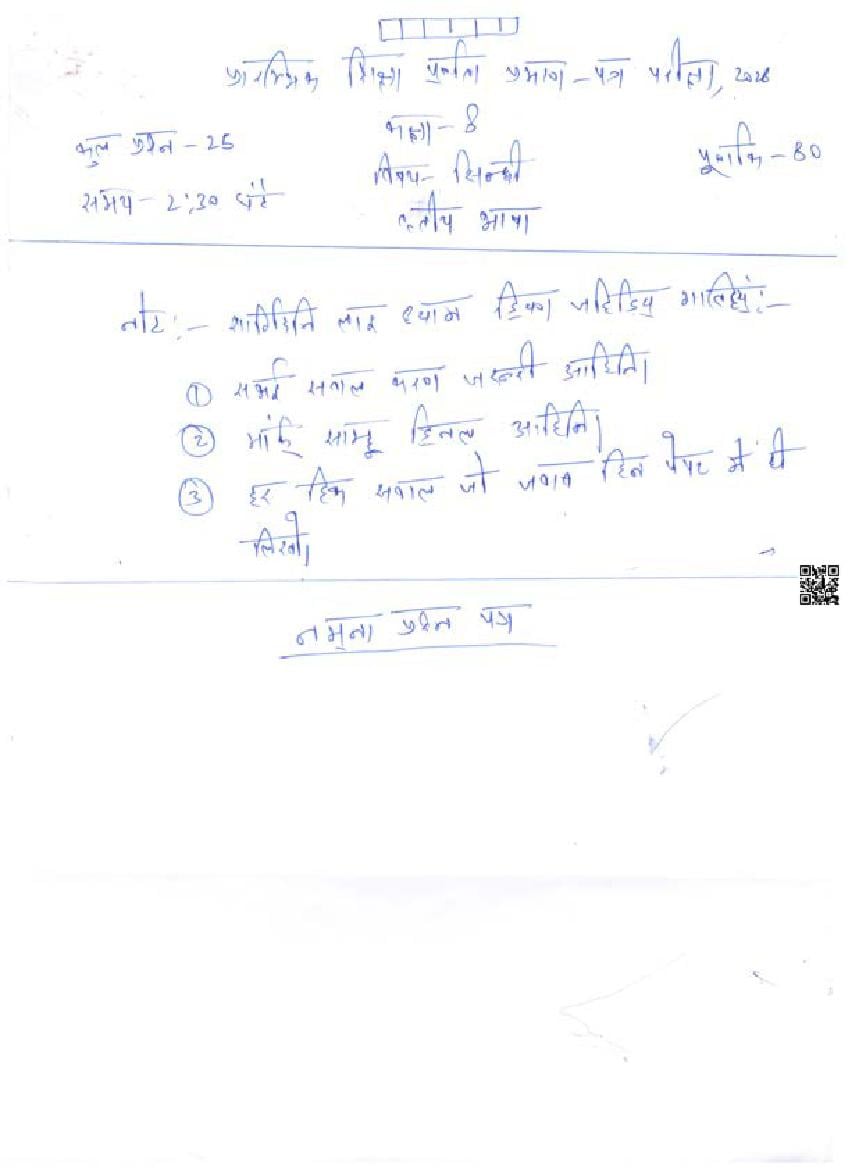 प्रारम्भिक शिक्षा पूर्णता प्रमाण-पत्र परीक्षा, 2026
कक्षा - 8
कुल प्रश्न - 25
पूर्णांक - 80
विषय - सिन्धी
समय - 2:30 घंटे
तृतीय भाषा
नोट :-
① सभई सवाल करण जरूरी आहिनि।
② मार्क साम्हू डिनल आहिनि।
③ हर हिक सवाल जो जवाब हिन पेपर में ही
लिखो।
नमूना प्रश्न पत्र